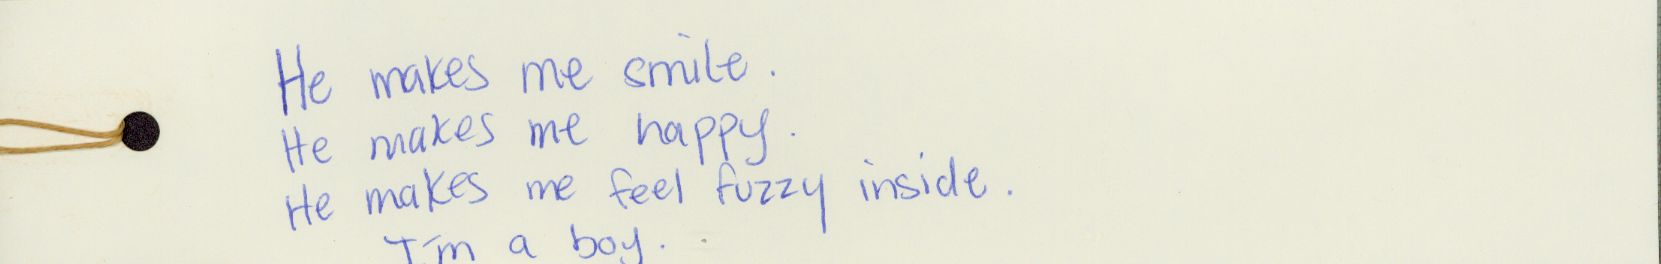 He makes me smile.
He makes me happy.
He makes me feel fuzzy inside.
I'm a boy.